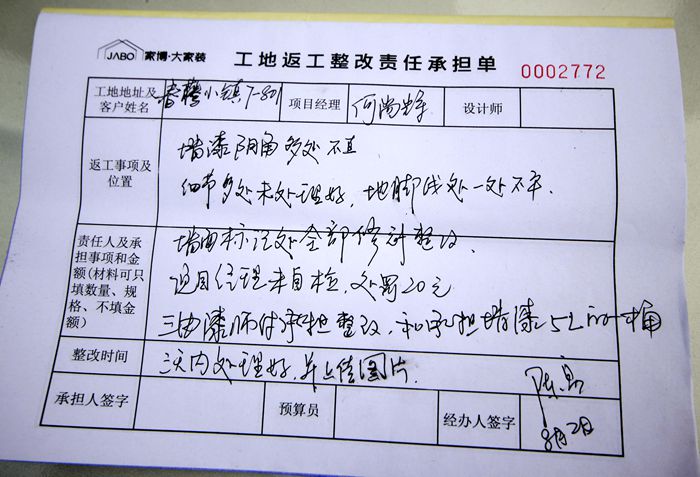 JABO 家博·大家装 工地返工整改责任承担单 0002772
工地地址及客户姓名 春藤小镇7-801 项目经理 何尚 设计师
返工事项及位置
墙漆阴角多处不直
细节多处未处理好,地脚线处一处不平.
责任人及承担事项和金额(材料可只填数量、规格、不填金额)
墙面标注处全部修补整改.
项目经理未自检,处罚20元
油漆师付承担整改,和承担墙漆5L的一桶
整改时间 三天内处理好,并上传图片.
承担人签字 预算员 经办人签字 陈
8月2日